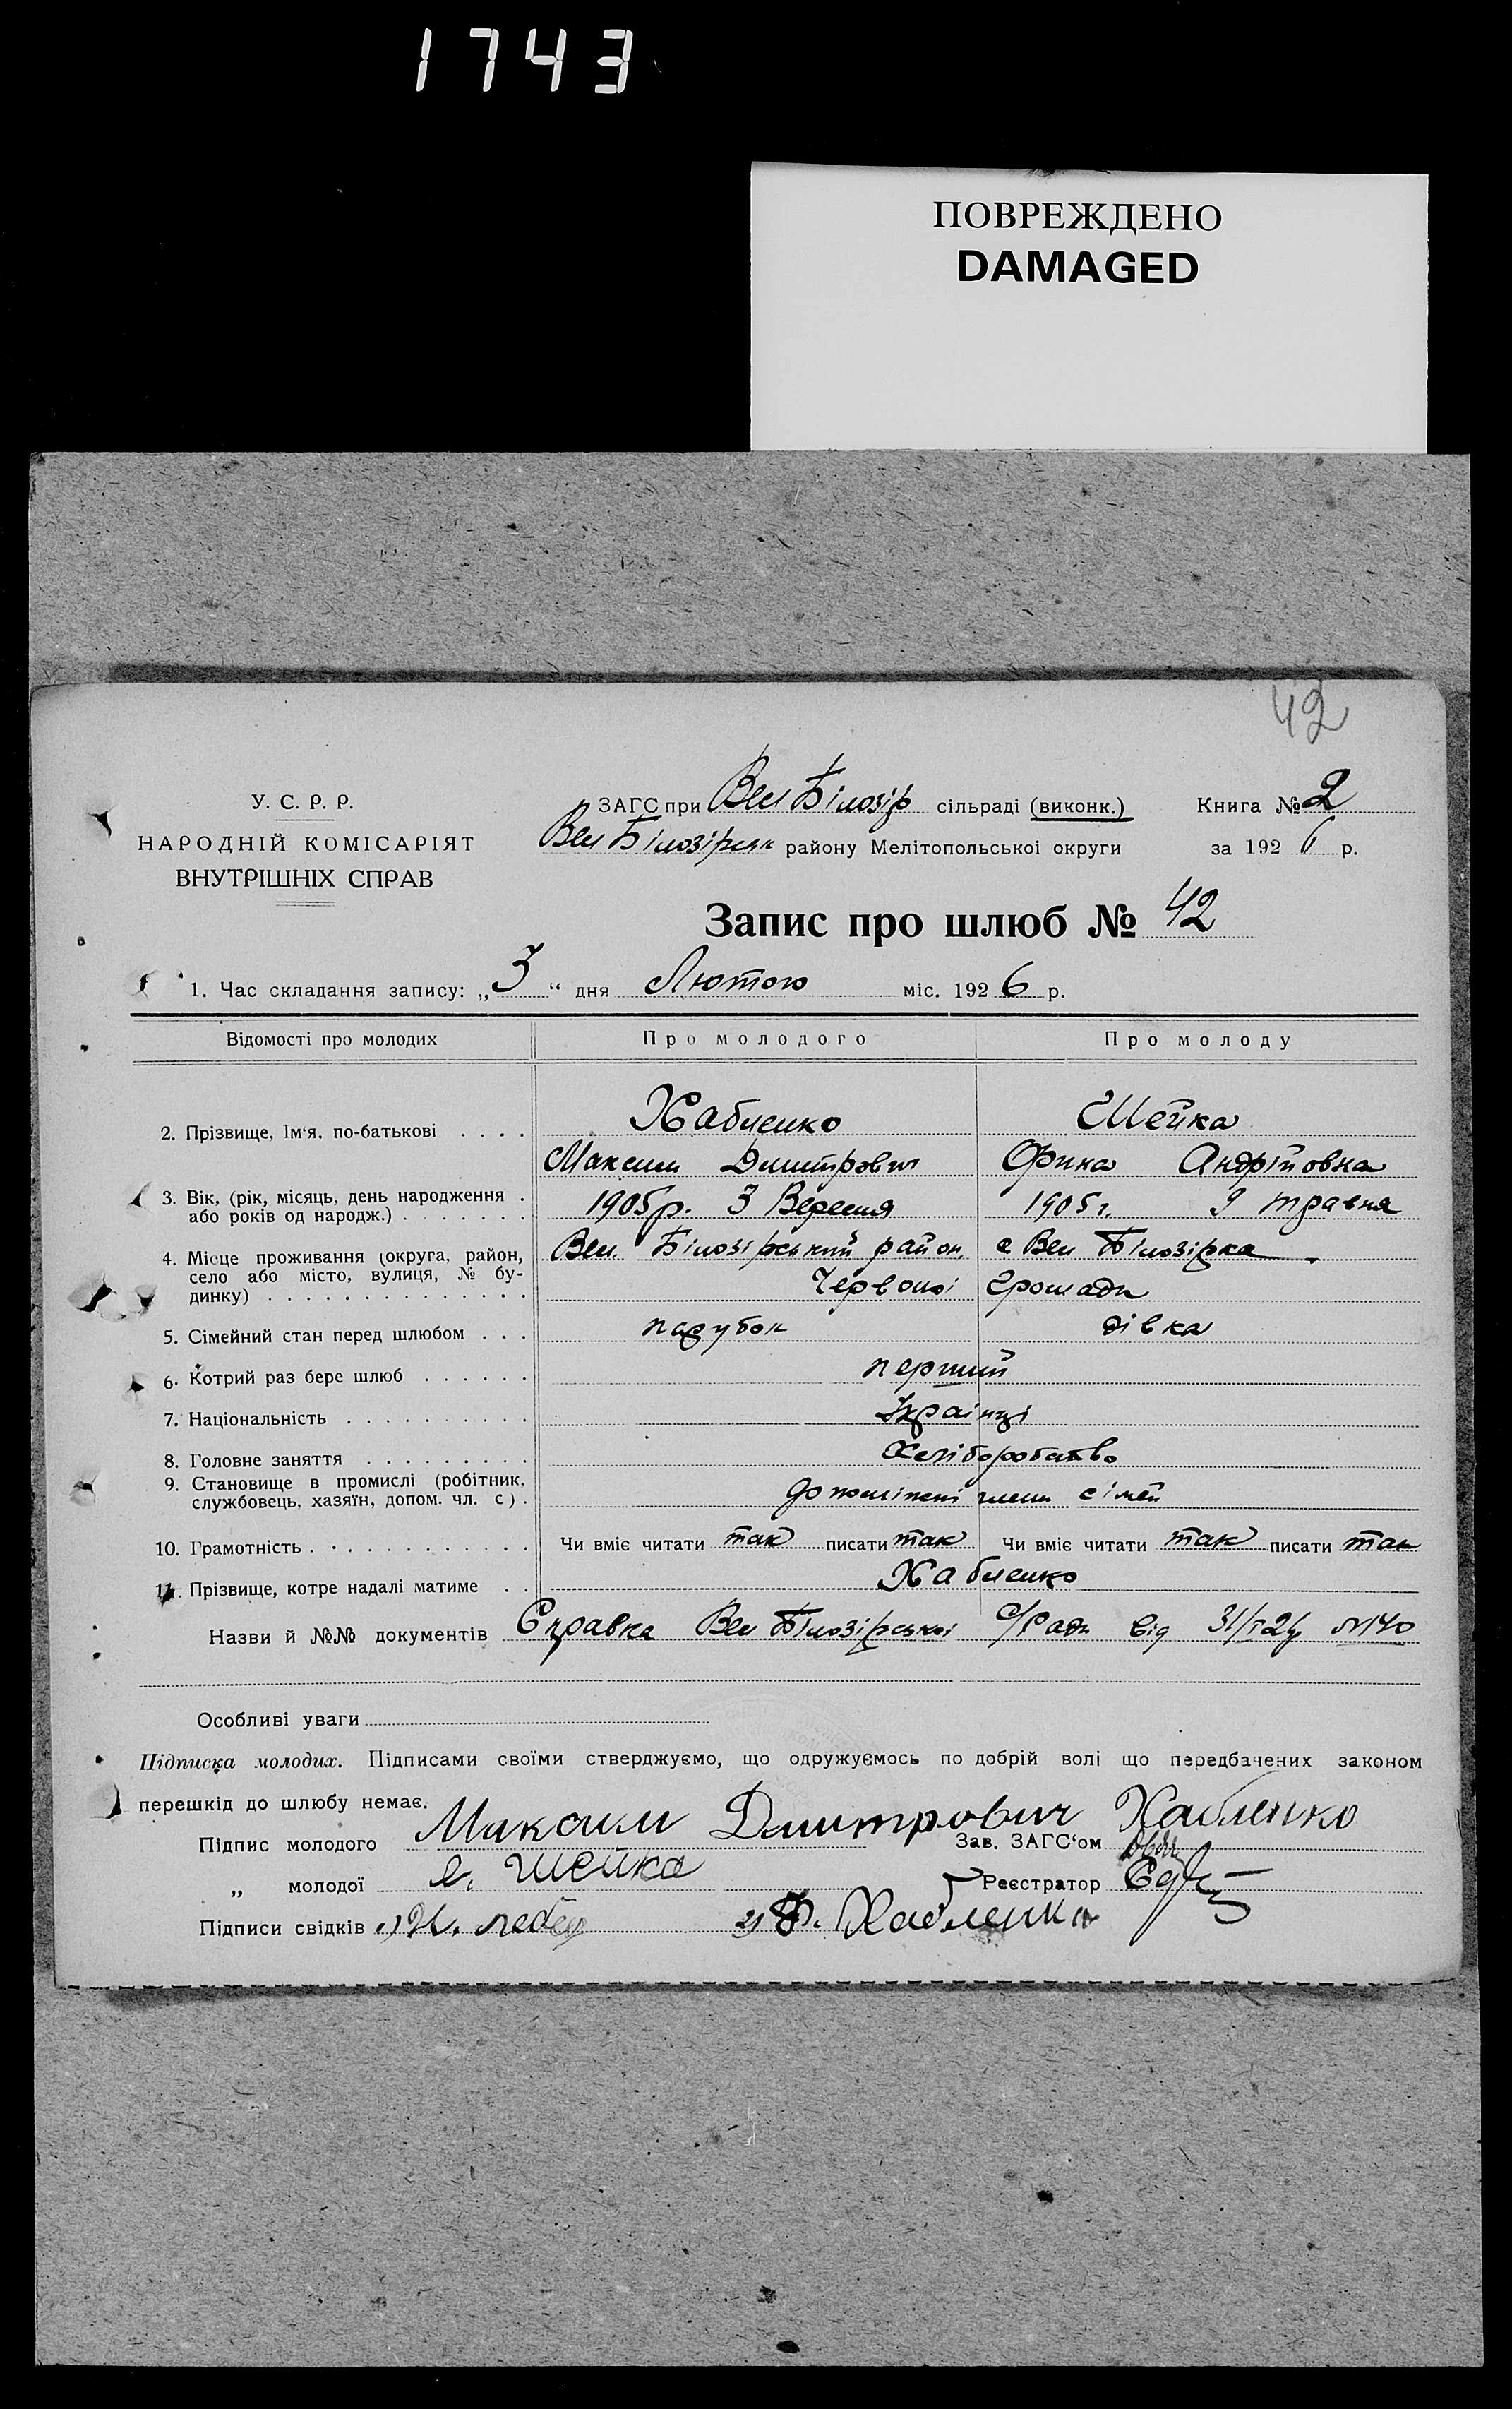 1743
ПОВРЕЖДЕНО
DAMAGED
42
У. С. Р. Р.
НАРОДНІЙ КОМІСАРІЯТ
ВНУТРІШНІХ СПРАВ
ЗАГС при Вел Білозір сільраді (виконк.)
Вел Білозірськ району Мелітопольської округи
Книга № 2
за 1926 р.
Запис про шлюб № 42
1. Час складання запису: „3“ дня Лютого міс. 1926 р.
Відомості про молодих Про молодого Про молоду
2. Прізвище, Ім'я, по-батькові . . . . Хабленко Шейка
Максим Дмитрович Орина Андрійовна
3. Вік, (рік, місяць, день народження . або років од народж.) . . . . . . . 1905р. 3 Вересня 1905 г. 9 травня
4. Місце проживання (округа, район, Вел. Білозірський район, с Вел Білозірка
село або місто, вулиця, № будинку) . . . . . . . . . . . . . . Червоної Громади
5. Сімейний стан перед шлюбом . . . парубок дівка
6. Котрий раз бере шлюб . . . . . . перший
7. Національність . . . . . . . . . . Українці
8. Головне заняття . . . . . . . . . Хліборобство
9. Становище в промислі (робітник,
службовець, хазяїн, допом. чл. с) . члени сімей
10. Грамотність . . . . . . . . . . . . Чи вміє читати так писати так Чи вміє читати так писати так
11. Прізвище, котре надалі матиме . . Хабленко
Назви й №№ документів Справка Вел Білозірської С/Ради від 31/I 2 №140
Особливі уваги
Підписка молодих. Підписами своїми стверджуємо, що одружуємось по добрій волі що передбачених законом
перешкід до шлюбу немає.
Підпис молодого Максим Дмитрович Хабленко
Зав. ЗАГС'ом
„ молодої Шейка
Реєстратор
Підписи свідків 1) 2) Хабленко